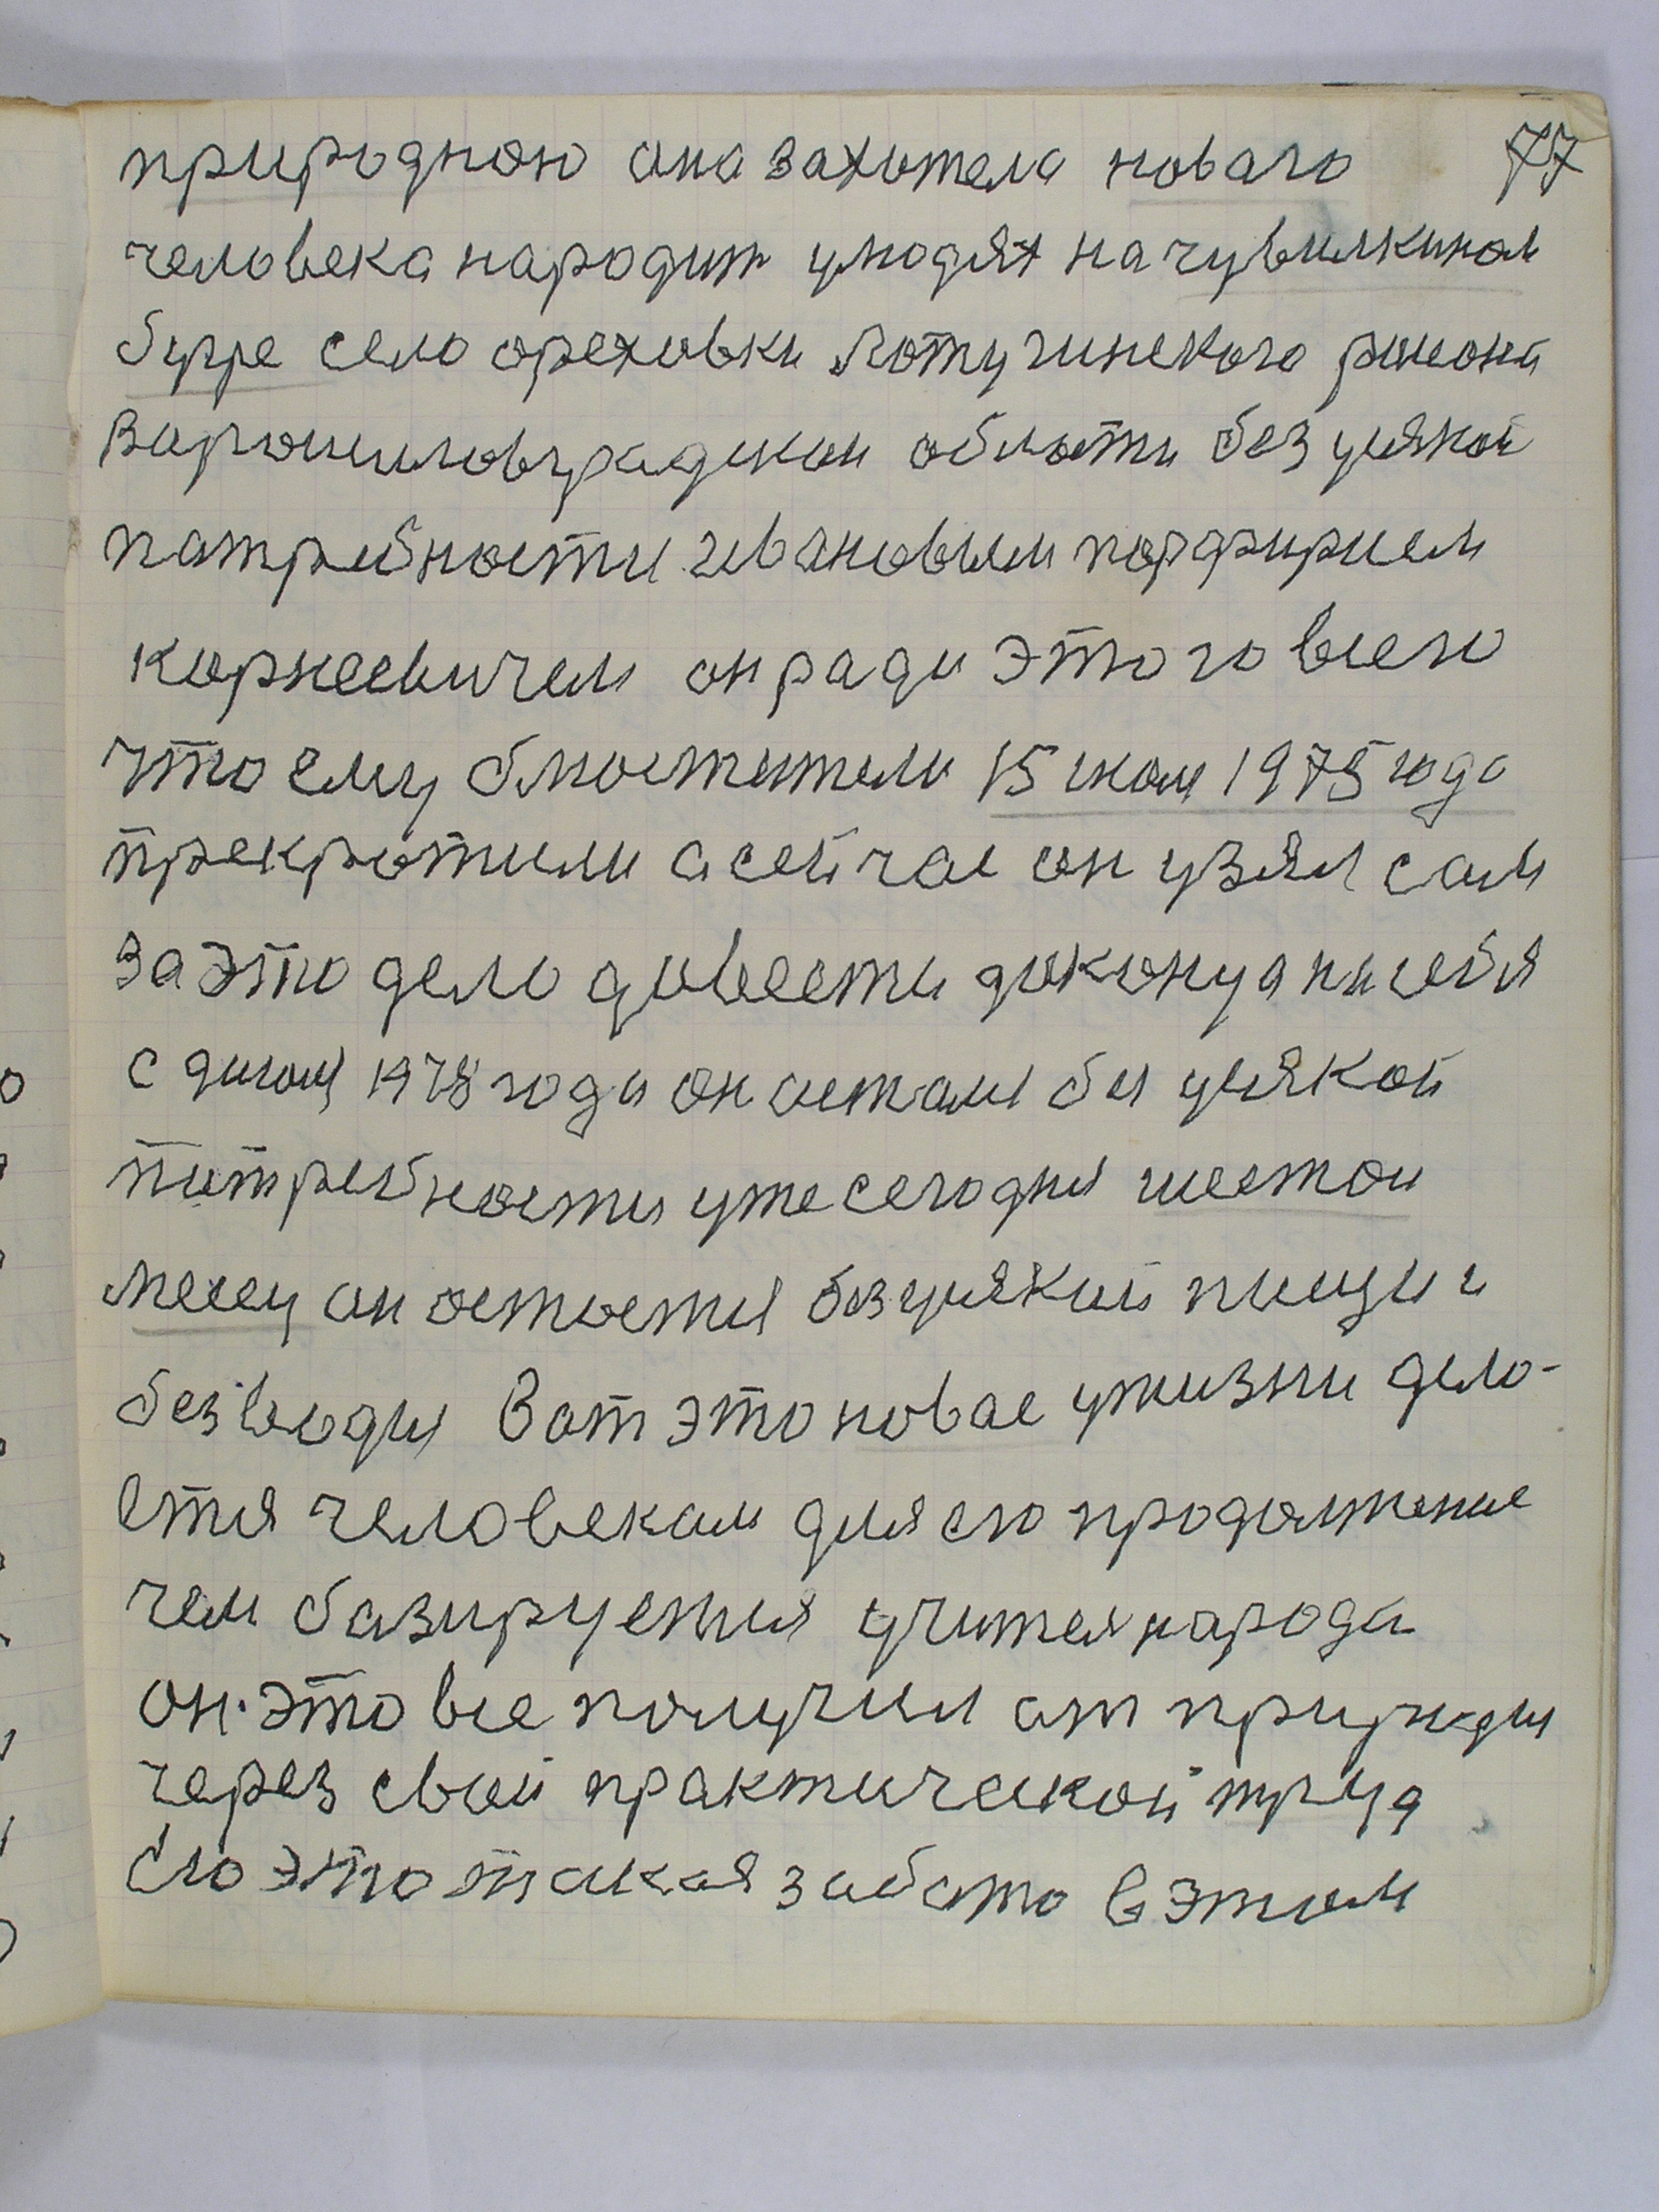 природною она захотела новаго 77
человека народит умодях на чувилкином
бугре село ореховки Лотугинского раиона
Ворошиловградскои области без усякой
патребности ивановым порфирием
корнеевичем он ради этого всего
что ему блюстители 15 июля 1975 года
прекротили а сейчас он узял сам
за это дело довести до конуа
с 1978 года он осталсы без усякой
питребности уже сегодня шестои
месец он остается без усякий пищи и
без воды Вот это новае ужизни дело-
ется человекам для его продолжение
чем базируется учител народа
он это все получил от природы
через свой практической труд
Его это такая забота в этом